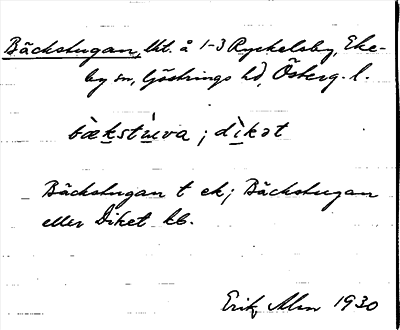 Bäckstugan, lht. å 1-3 Ryckelsby, Eke-
by sn, Göstrings hd, Österg. l.
bækstùva ; dìkət
Bäckstugan t ek; Bäckstugan
eller Diket kb.
Erik Alm 1930